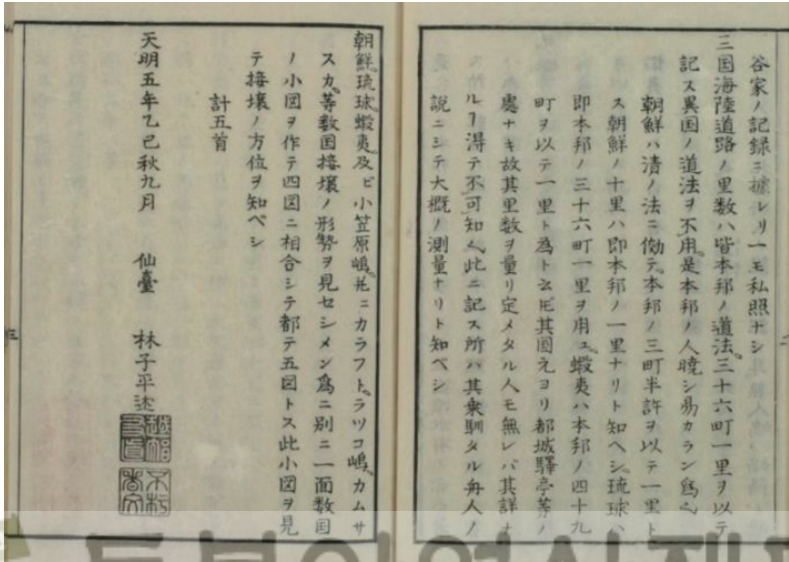 谷家ノ記録ニ據レリ一モ私照ナシ
三国海陸道路ノ里数ハ皆本邦ノ道法三十六町一里ヲ以テ
記ス異国ノ道法ヲ不用是本邦ノ人暁シ易カラン爲
朝鮮ハ清ノ法ニ傚テ本邦ノ三町半許ヲ以テ一里ト
ス朝鮮ノ十里ハ即本邦ノ一里ナリト知ヘシ琉球ハ
即本邦ノ三十六町一里ヲ用ユ蝦夷ハ本邦ノ四十九
町ヲ以テ一里ト為ト云𪜈其国元ヨリ都城驛亭等ノ
處ナキ故其里数ヲ量リ定メタル人モ無レバ其詳ナ
ルヿ得テ不可知此ニ記ス所ハ其乗馴タル舟人ノ
説ニシテ大概ノ測量ナリト知ベシ
朝鮮琉球蝦夷及ビ小笠原嶋並ニカラフトラツコ嶋カムサ
スカ等数国接壌ノ形勢ヲ見セシメン爲ニ別ニ一面数国
ノ小図ヲ作テ四図ニ相合シテ都テ五図トス此小図ヲ見
テ接壌ノ方位ヲ知ベシ
計五首
天明五年乙巳秋九月 仙臺 林子平述
三